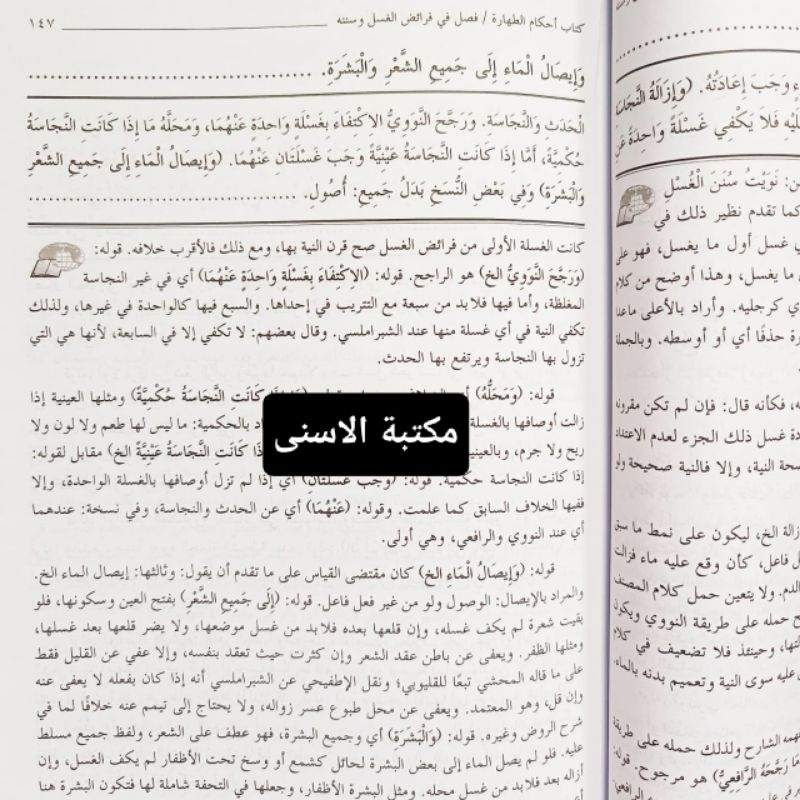 كتاب أحكام الطهارة / فصل في فرائض الغسل وسننه ١٤٧
وَإِيصَالُ الْمَاءِ إِلَى جَمِيعِ الشَّعْرِ وَالْبَشَرَةِ.
الْحَدَث وَالنَّجَاسَة. وَرَجَّحَ النَّوَوِيُّ الِاكْتِفَاءَ بِغَسْلَة وَاحِدَةٍ عَنْهُمَا، وَمَحَلُّهُ مَا إِذَا كَانَتِ النَّجَاسَةُ
حُكْمِيَّةً، أَمَّا إِذَا كَانَتِ النَّجَاسَةُ عَيْنِيَّةً وَجَبَ غَسْلَتَانِ عَنْهُمَا. (وَإِيصَالُ الْمَاءِ إِلَى جَمِيعِ الشَّعْرِ
وَالْبَشَرَةِ) وَفِي بَعْضِ النُّسَخِ بَدَلُ جَمِيعِ: أُصُولِ.
كانت الغسلة الأولى من فرائض الغسل صح قرن النية بها، ومع ذلك فالأقرب خلافه. قوله:
(وَرَجَّحَ النَّوَوِيُّ الخ) هو الراجح. قوله: (الِاكْتِفَاءَ بِغَسْلَةٍ وَاحِدَةٍ عَنْهُمَا) أي في غير النجاسة
المغلظة، وأما فيها فلابد من سبعة مع التتريب في إحداها. والسبع فيها كالواحدة في غيرها، ولذلك
تكفي النية في أي غسلة منها عند الشبراملسي. وقال بعضهم: لا تكفي إلا في السابعة، لأنها هي التي
تزول بها النجاسة ويرتفع بها الحدث.
قوله: (وَمَحَلُّهُ) أي كَانَتِ النَّجَاسَةُ حُكْمِيَّةً) ومثلها العينية إذا
زالت أوصافها بالغسلة بالحكمية: ما ليس لها طعم ولا لون ولا
ريح ولا جرم، وبالعينية كَانَتِ النَّجَاسَةُ عَيْنِيَّةً الخ) مقابل لقوله:
إذا كانت النجاسة حكمية. قوله: (وَجَبَ غَسْلَتَانِ) أي إذا لم تزل أوصافها بالغسلة الواحدة، وإلا
ففيها الخلاف السابق كما علمت. وقوله: (عَنْهُمَا) أي عن الحدث والنجاسة، وفي نسخة: عندهما
أي عند النووي والرافعي، وهي أولى.
قوله: (وَإِيصَالُ الْمَاءِ الخ) كان مقتضى القياس على ما تقدم أن يقول: وثالثها: إيصال الماء الخ.
والمراد بالإيصال: الوصول ولو من غير فعل فاعل. قوله: (إِلَى جَمِيعِ الشَّعْرِ) بفتح العين وسكونها، فلو
بقيت شعرة لم يكف غسله، وإن قلعها بعده فلا بد من غسل موضعها، ولا يضر قلعها بعد غسلها،
ومثلها الظفر. ويعفى عن باطن عقد الشعر وإن كثرت حيث تعقد بنفسه، وإلا عفي عن القليل فقط
على ما قاله المحشي تبعًا للقليوبي؛ ونقل الإطفيحي عن الشبراملسي أنه إذا كان بفعله لا يعفى عنه
وإن قل، وهو المعتمد. ويعفى عن محل طبوع عسر زواله، ولا يحتاج إلى تيمم عنه خلافًا لما في
شرح الروض وغيره. قوله: (وَالْبَشَرَةِ) أي وجميع البشرة، فهو عطف على الشعر، ولفظ جميع مسلط
عليه. فلو لم يصل الماء إلى بعض البشرة لحائل كشمع أو وسخ تحت الأظفار لم يكف الغسل، وإن
أزاله بعد فلابد من غسل محله. ومثل البشرة الأظفار، وجعلها في التحفة شاملة لها فتكون البشرة هنا
مكتبة الاسنى
وَجَبَ إِعَادَتُهُ. (وَإِزَالَةُ النَّجَاسَ
فَلَا يَكْفِي غَسْلَةٌ وَاحِدَةٌ عَن
نَوَيْتُ سُنَنَ الْغُسْلِ
كما تقدم نظير ذلك في
غسل أول ما يغسل، فهو على
ما يغسل، وهذا أوضح من كلام
كرجليه. وأراد بالأعلى ماعدا
حذفًا أي أو أوسطه. وبالجملة
فكأنه قال: فإن لم تكن مقرونة
غسل ذلك الجزء لعدم الاعتداد
النية، وإلا فالنية صحيحة ولو
الخ، ليكون على نمط ما سبق
فاعل، كأن وقع عليه ماء فزالت
الدم. ولا يتعين حمل كلام المصنف
حمله على طريقة النووي ويكون
وحينئذ فلا تضعيف في كلام
عليه سوى النية وتعميم بدنه بالماء.
الشارح ولذلك حمله على طريقة
رَجَّحَهُ الرَّافِعِيُّ) هو مرجوح. قوله: